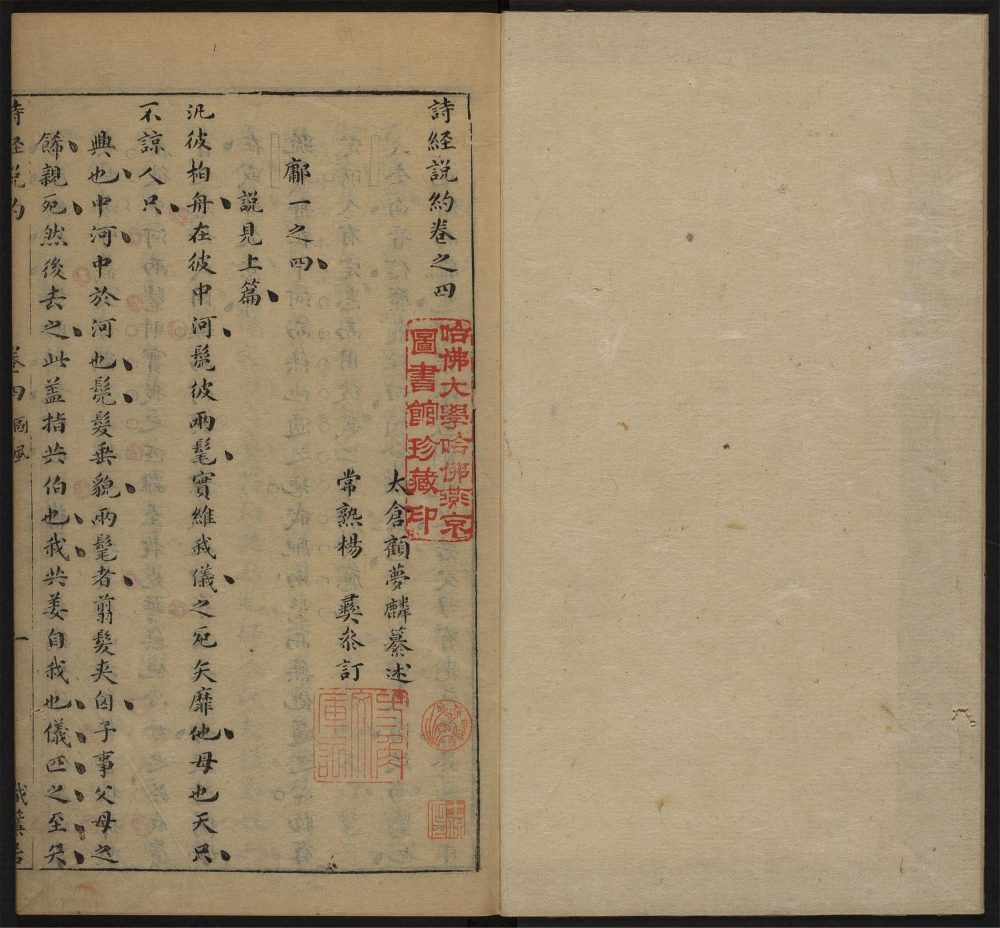 詩経說約卷之四
太倉顧夢麟纂述
常熟楊彝叅訂
鄘一之四
說見上篇
汎彼柏舟在彼中河髧彼兩髦實維我儀之死矢靡他母也天只
不諒人只
興也中河中於河也髧髮垂貌兩髦者翦髮夾囟子事父母之
餙親死然後去之此盖指共伯也我共姜自我也儀匹之至矢
詩経說約
卷四國風
一
織簾居
哈佛大學哈佛燕京
圖書館珍藏印